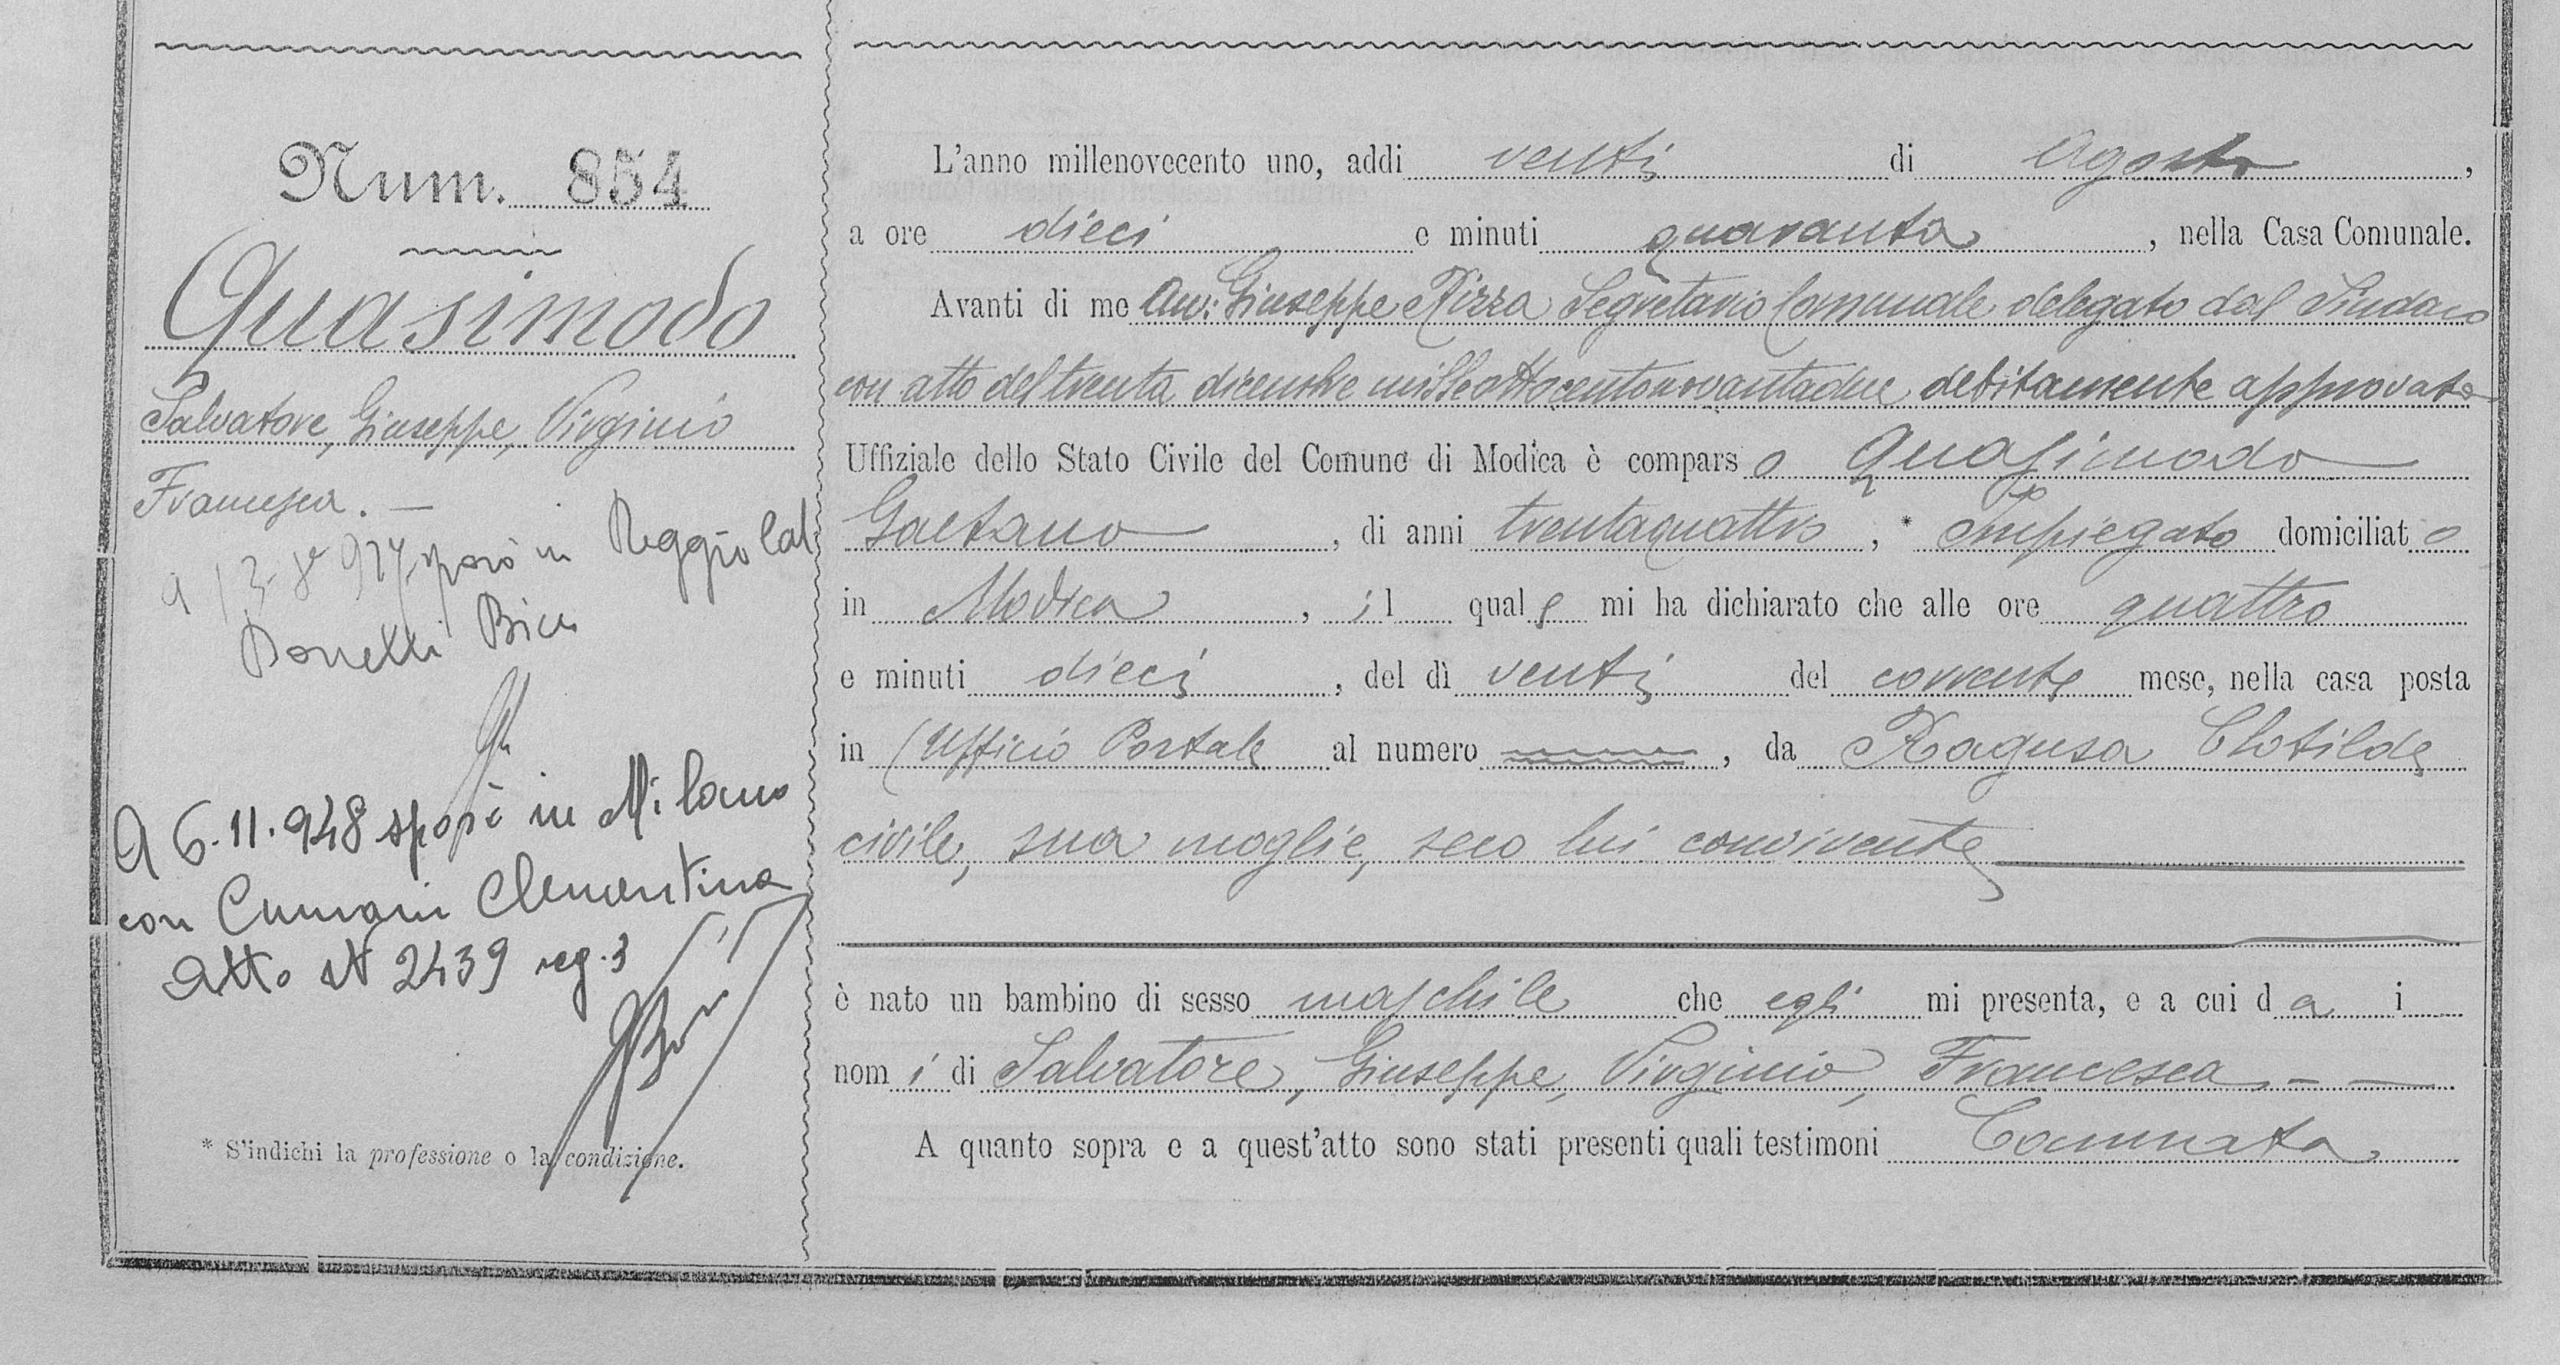 Num. 854
Quasimodo
Salvatore, Giuseppe, Virginio
Francesca. —
sposò in Reggio Cal
Donetti Bice
A 6.11.948 sposò in Milano
con Cumani Clementina
atto N 2439 reg. 3
* S'indichi la professione o la condizione.
L'anno millenovecento uno, addi venti di Agosto,
a ore dieci e minuti quaranta, nella Casa Comunale.
Avanti di me Avv: Giuseppe Rizza Segretario Comunale delegato dal Sindaco
con atto del trenta dicembre milleottocentonovantadue debitamente approvato
Uffiziale dello Stato Civile del Comune di Modica è comparso Quasimodo
Gaetano, di anni trentaquattro, * Impiegato domiciliato
in Modica, il quale mi ha dichiarato che alle ore quattro
e minuti dieci, del dì venti del corrente mese, nella casa posta
in Ufficio Postale al numero, da Ragusa Clotilde
civile, sua moglie, seco lui convivente
è nato un bambino di sesso maschile che egli mi presenta, e a cui da i
nomi di Salvatore, Giuseppe, Virginio, Francesca - —
A quanto sopra e a quest'atto sono stati presenti quali testimoni Cannata